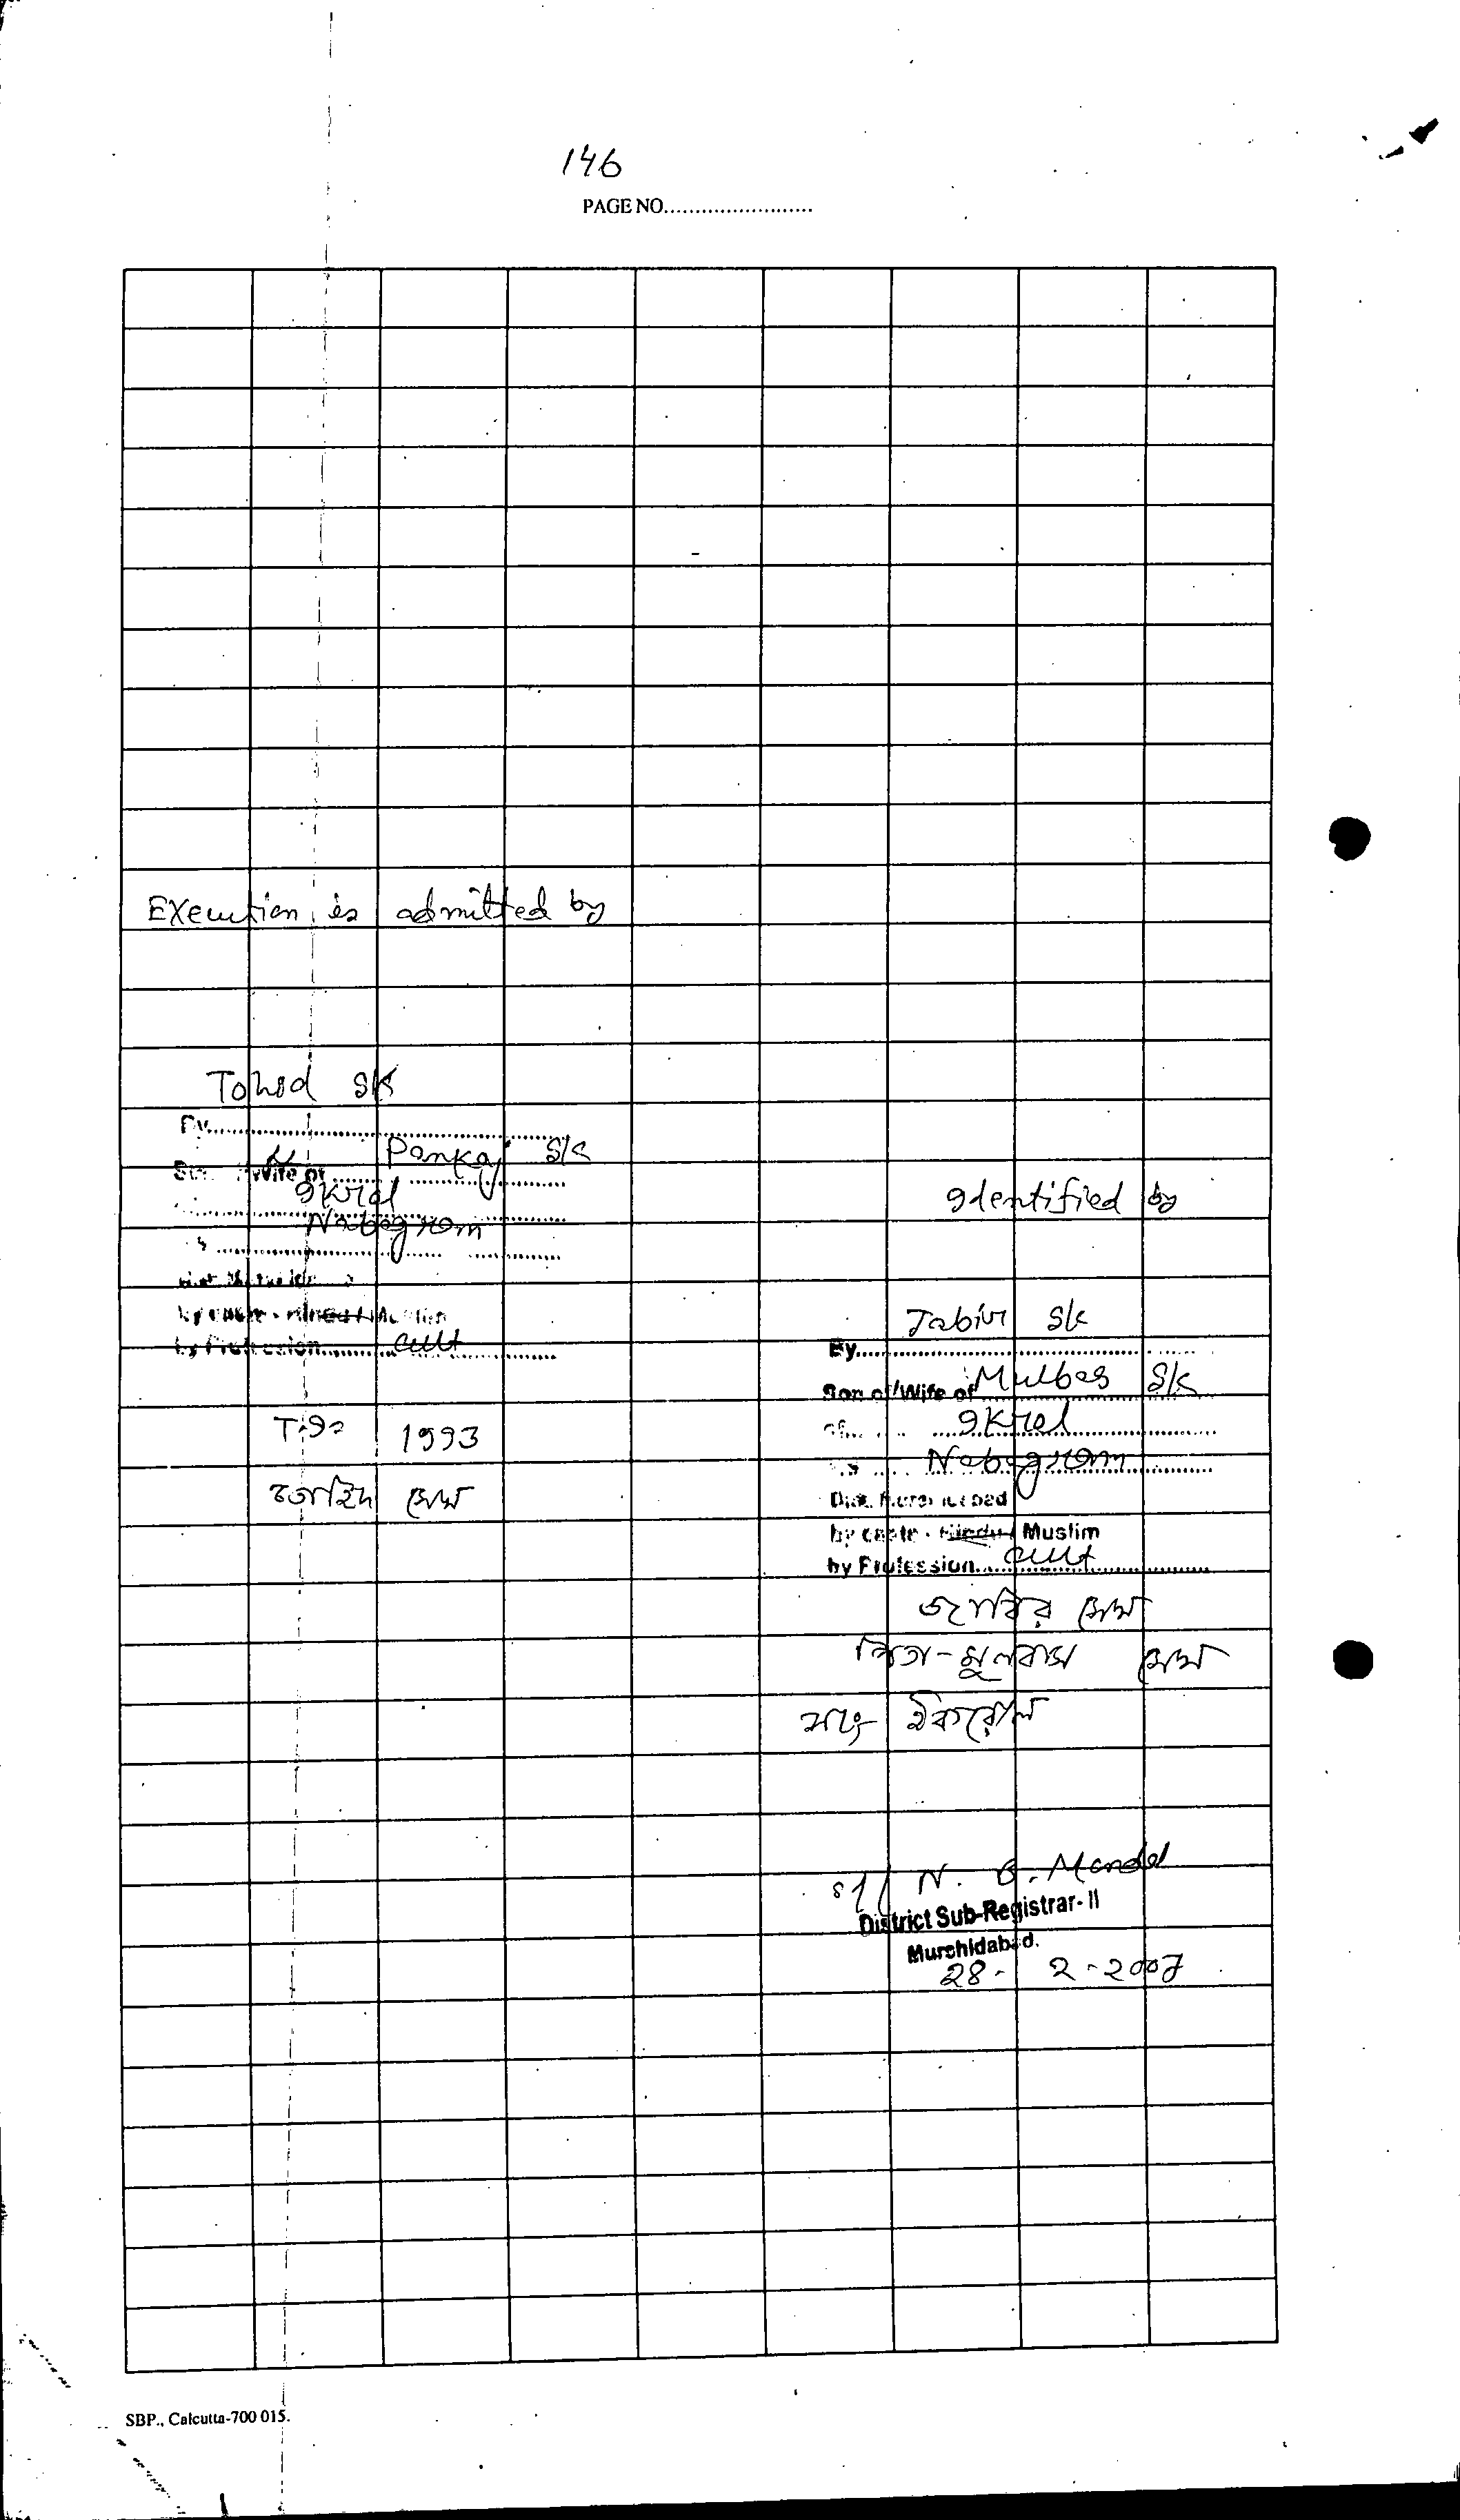 146
PAGE NO........................
Execution is admitted by
Tohid SK
By............
Wife of Pankaj S/K
9Krol
Nabagram
by caste - Hindu / Muslim
by Profession.......... cult
1993
তোহিদ সেখ
Identified by
Jabir Sk
By............
Son of/Wife of Mulbas S/K
of...... 9Krol
Nabagram
Dist. Murshidabad
by caste - Hindu / Muslim
by Profession.... cult
জাবির সেখ
পিতা-মুলবাস সেখ
সাং ইকরোল
Sd/ N. G. Mandal
District Sub-Registrar- II
Murshidabad.
28 - 2 - 2007
SBP., Calcutta-700 015.